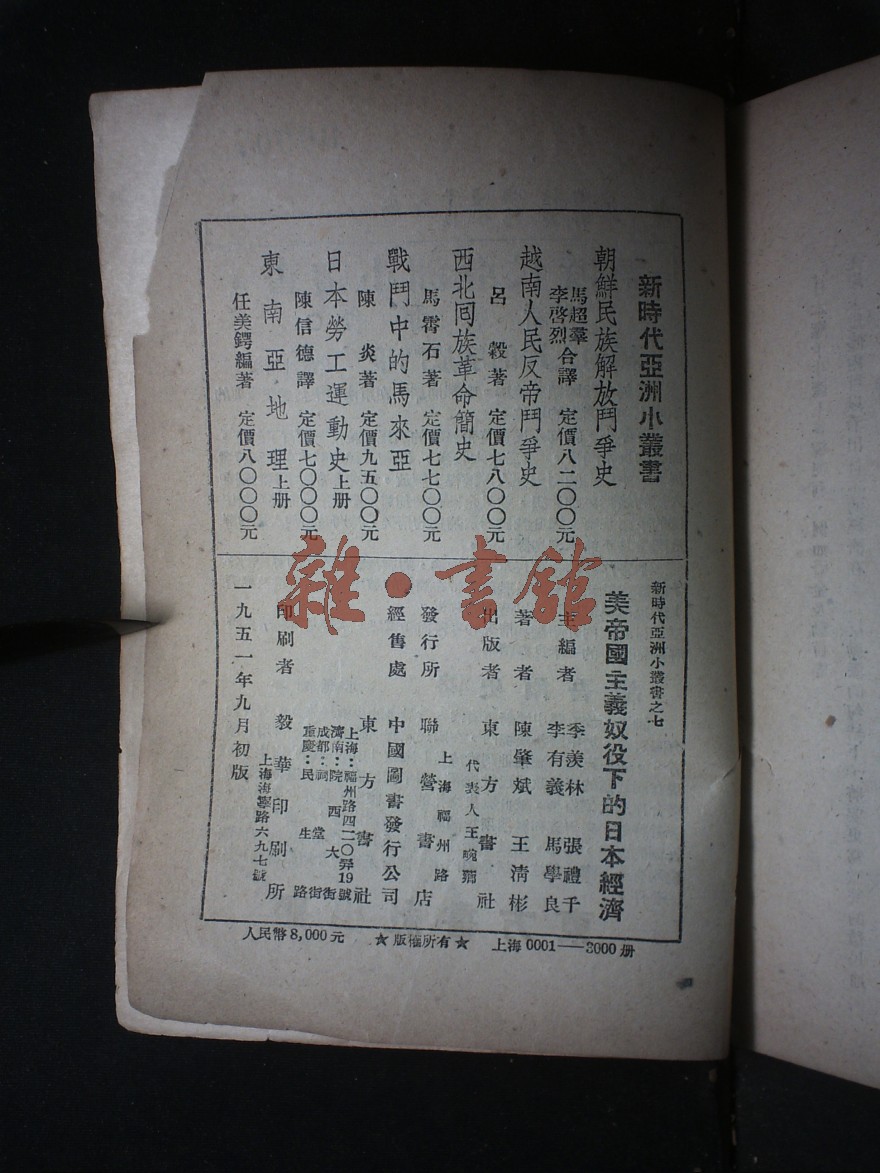 新時代亞洲小叢書
朝鮮民族解放鬥爭史
馬超羣
李啓烈 合譯 定價八二〇〇元
越南人民反帝鬥爭史
呂穀著 定價七八〇〇元
西北回族革命簡史
馬霄石著 定價七七〇〇元
戰鬥中的馬來亞
陳炎著 定價九五〇〇元
日本勞工運動史上册
陳信德譯 定價七〇〇〇元
東南亞地理上册
任美鍔編著 定價八〇〇〇元
新時代亞洲小叢書之七
美帝國主義奴役下的日本經濟
主編者 季羨林 張禮千
李有義 馬學良
著者 陳肇斌 王清彬
出版者 東方書社
代表人王畹薌
上海福州路
發行所 聯營書店
經售處 中國圖書發行公司
東方書社
上海:福州路四二〇弄19號
濟南:院西大街
成都:祠堂街
重慶:民生路
印刷者 毅華印刷所
上海海寧路六九七號
一九五一年九月初版
人民幣8,000元 ★版權所有★ 上海0001—3000册
雜·書館